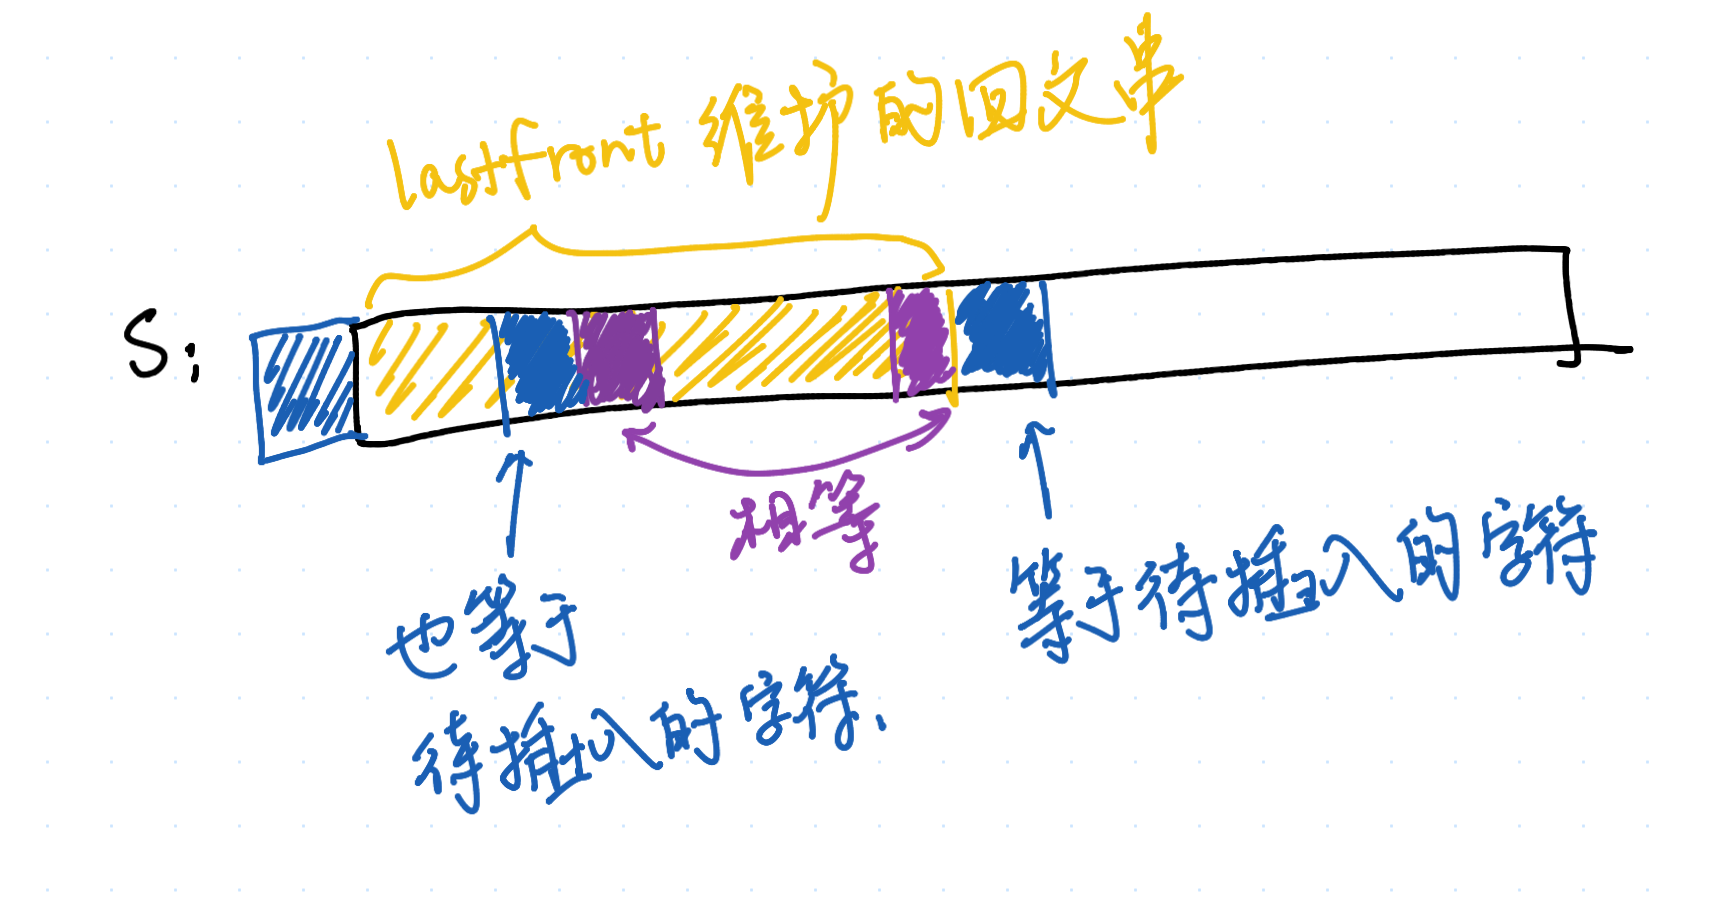 lastfront 维护的回文串
S:
相等
等于待插入的字符
也等于
待插入的字符、